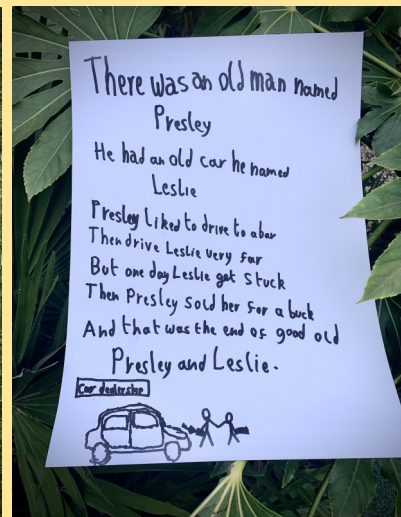 There was an old man named
Presley
He had an old car he named
Leslie
Presley liked to drive to a bar
Then drive Leslie very far
But one day Leslie got stuck
Then Presley sold her for a buck
And that was the end of good old
Presley and Leslie.
Car dealership